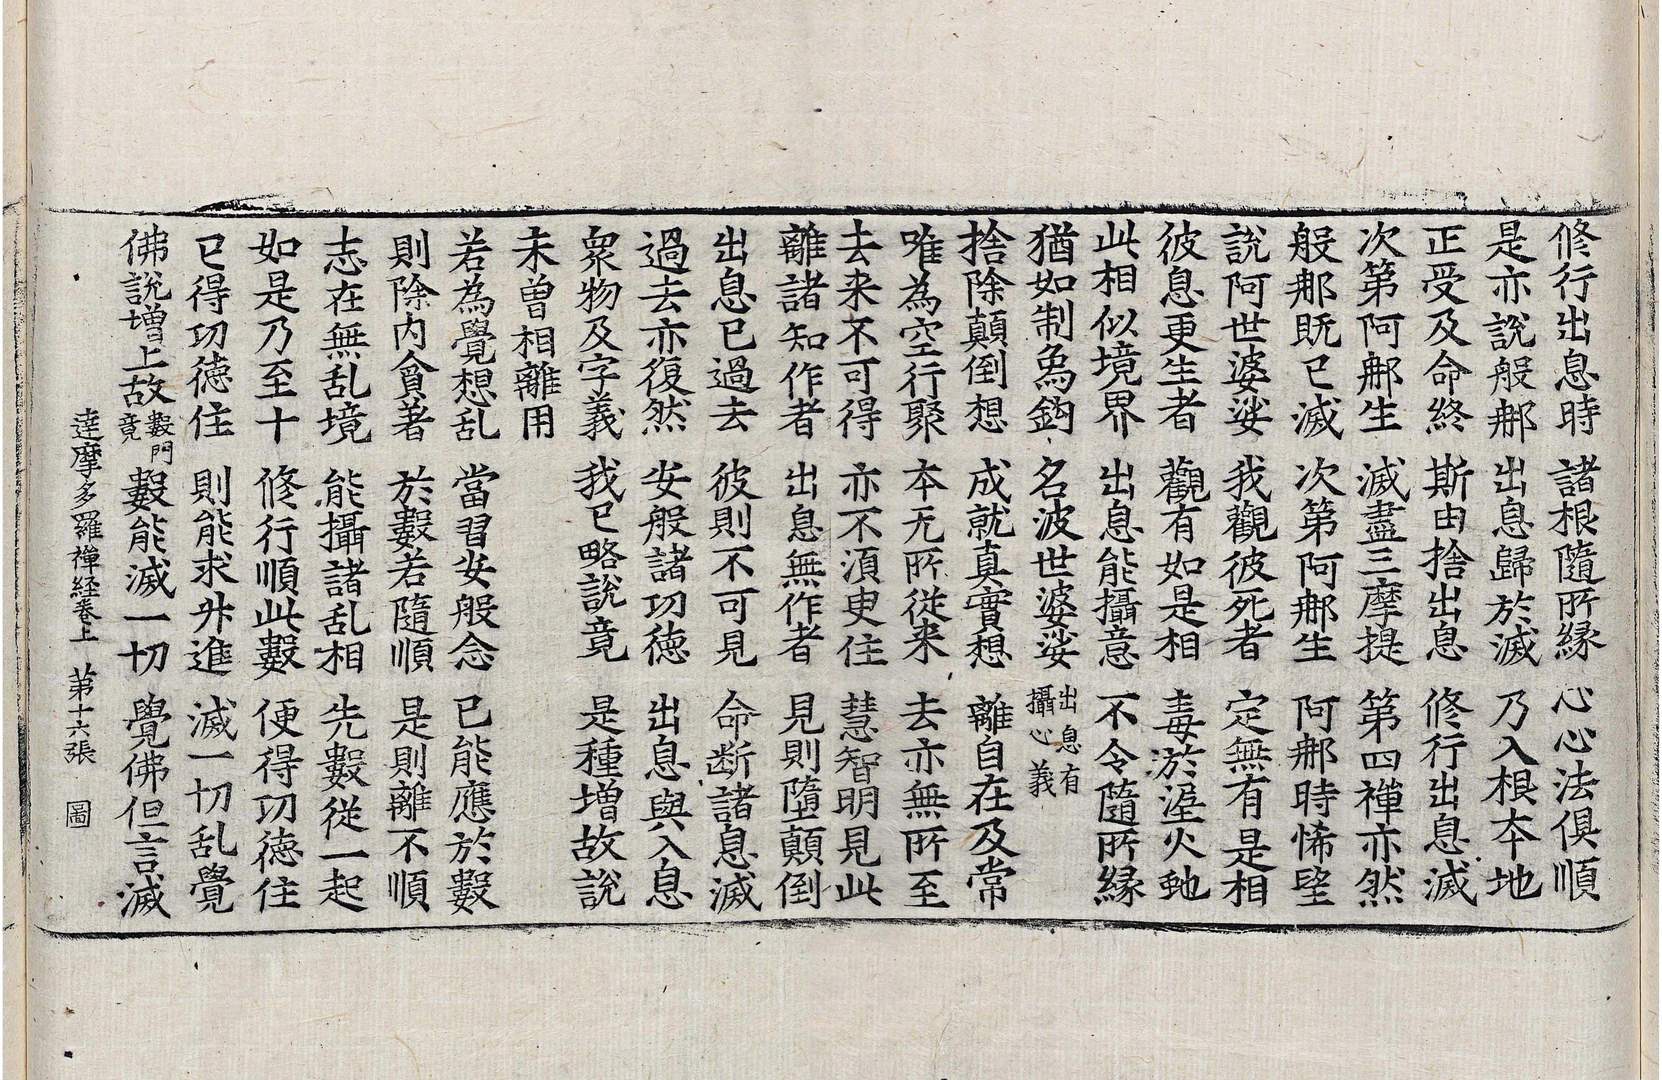 修行出息時 諸根隨所縁 心心法俱順
是亦說般那 出息歸於滅 乃入根本地
正受及命終 斯由捨出息 修行出息滅
次第阿那生 滅盡三摩提 第四禪亦然
般那既已滅 次第阿那生 阿那時悕望
說阿世婆娑 我觀彼死者 定無有是相
彼息更生者 觀有如是相 毒於渥火虵
此相似境界 出息能攝意 不令隨所縁
猶如制象鈎 名波世婆娑 出息有攝心義
捨除顛倒想 成就真實想 離自在及常
唯為空行聚 本无所従来 去亦無所至
去来不可得 亦不須臾住 慧智明見此
離諸知作者 出息無作者 見則墮顛倒
出息已過去 彼則不可見 命断諸息滅
過去亦復然 安般諸功徳 出息與入息
衆物及字義 我已略說竟 是種増故說
未曽相離用
若為覺想乱 當習安般念 已能應於數
則除内貪著 於數若隨順 是則離不順
志在無乱境 能攝諸乱相 先數従一起
如是乃至十 修行順此數 便得功徳住
已得功徳住 則能求升進 滅一切乱覺
佛說増上故 數門竟 數能滅一切 覺佛但言滅
達摩多羅禪経卷上 第十六張 圖